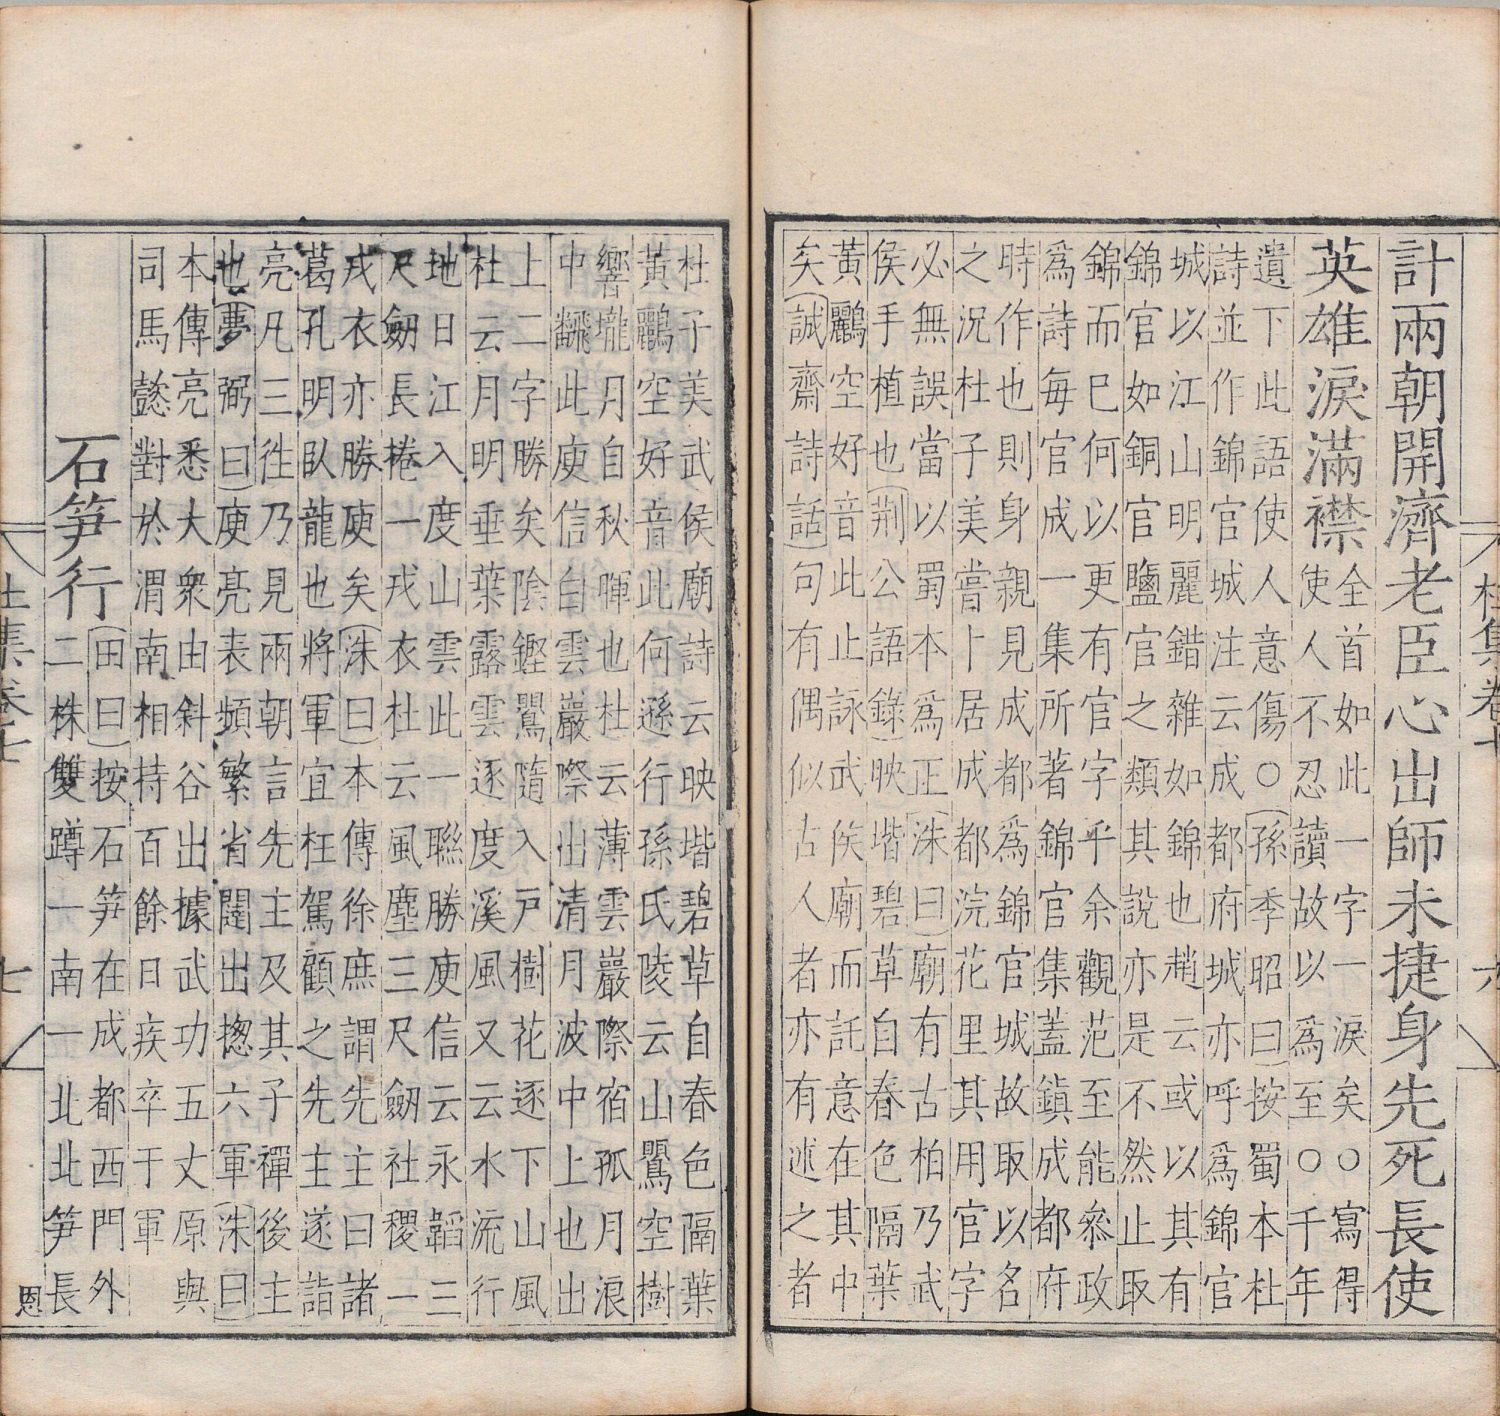 杜集卷十
六
計兩朝開濟老臣心出師未捷身先死長使
英雄淚滿襟
全首如此一字一淚矣○寫得
使人不忍讀故以爲至○千年
遺下此語使人意傷○孫季昭曰按蜀本杜
詩並作錦官城注云成都府城亦呼爲錦官
城以江山明麗錯雜如錦也趙云或以其有
錦官如銅官鹽官之類其說亦是不然止取
錦而已何以更有官字乎余觀范至能叅政
爲詩每官成一集所著錦官集蓋鎮成都府
時作也則身親見成都爲錦官城故取以名
之況杜子美嘗卜居成都浣花里其用官字
必無誤當以蜀本爲正洙曰廟有古柏乃武
侯手植也荆公語錄映堦碧草自春色隔葉
黃鸝空好音此止詠武侯廟而託意在其中
矣誠齋詩話句有偶似古人者亦有述之者
杜子美武侯廟詩云映堦碧草自春色隔葉
黃鸝空好音此何遜行孫氏陵云山鸎空樹
響壠月自秋暉也杜云薄雲巖際宿孤月浪
中飜此庾信白雲巖際出清月波中上也出
上二字勝矣陰鏗鸎隨入戶樹花逐下山風
杜云月明垂葉露雲逐度溪風又云水流行
地日江入度山雲此一聯勝庾信云永韜三
尺劒長捲一戎衣杜云風塵三尺劒社稷一
戎衣亦勝庾矣洙曰本傳徐庶謂先主曰諸
葛孔明臥龍也將軍宜枉駕顧之先主遂詣
亮凡三徃乃見兩朝言先主及其子禪後主
也夢弼曰庾亮表頻繁省闥出揔六軍洙曰
本傳亮悉大衆由斜谷出據武功五丈原與
司馬懿對於渭南相持百餘日疾卒于軍
石笋行
田曰按石笋在成都西門外
二株雙蹲一南一北北笋長
集卷十
七
恩